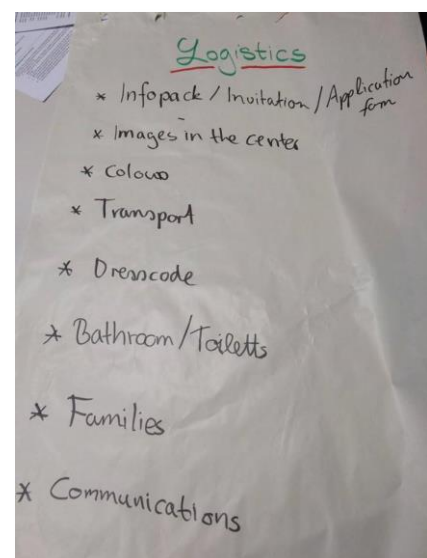 Logistics
* Infopack / Invitation / Application form
* Images in the center
* Colours
* Transport
* Dresscode
* Bathroom/Toiletts
* Families
* Communications